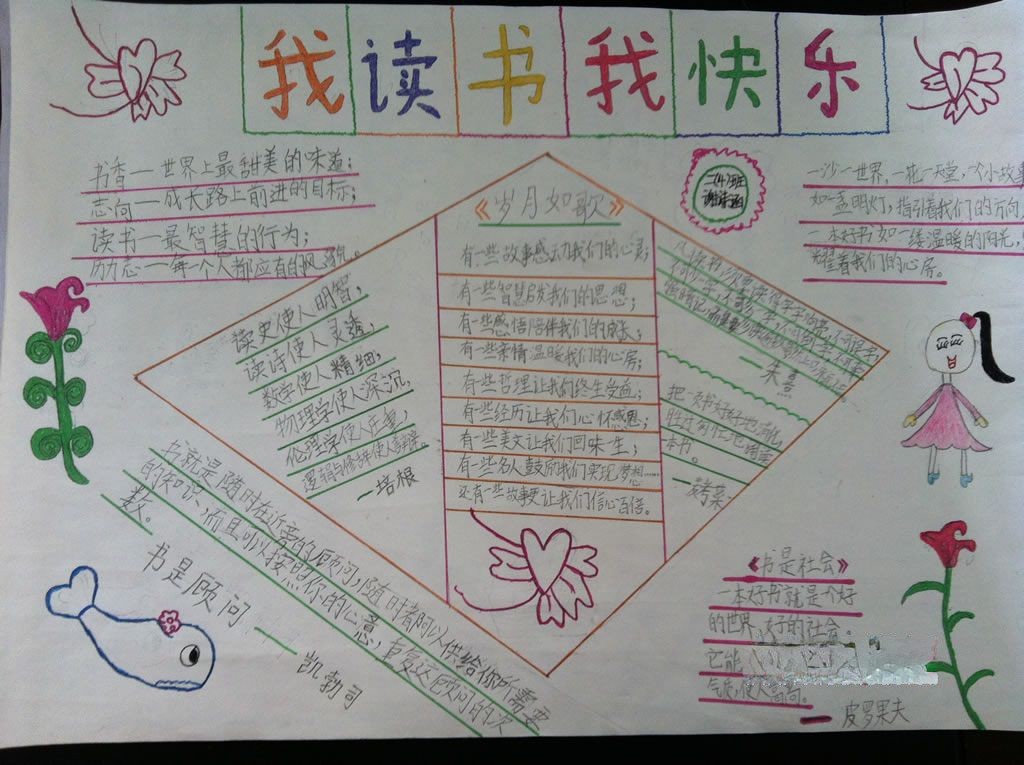 我读书我快乐
书香一世界上最甜美的味道;
志向一成长路上前进的目标;
读书一最智慧的行为;
励志一每一个人都应有的风貌。
二(4)班
一沙一世界,一花一天堂,一个小故事
如一盏明灯,指引着我们的方向,
一本好书如一缕温暖的阳光,
耀着我们的心房。
读史使人明智,
读诗使人灵透,
数学使人精细,
物理学使人深沉,
伦理学使人庄重,
逻辑与修辞使人善辩。
一培根
《岁月如歌》
有一些故事感动我们的心灵;
有一些智慧启发我们的思想;
有一些感悟陪伴我们的成长;
有一些亲情温暖我们的心房;
有一些哲理让我们终生受益;
有一些经历让我们心怀感恩;
有一些美文让我们回味一生;
有一些名人鼓励我们实现梦想……
还有一些故事更让我们信心百倍。
凡读书
一朱熹
把一本书好好地消化,
本书。
书就是随时在近旁的顾问,随时都可以供给你所需要
的知识,而且可以按照你的心意,重复这顾问的次
数。
书是顾问
一凯勃司
《书是社会》
一本好书就是个好
的世界,好的社会。
它能
气质,使人高尚。
一皮罗果夫